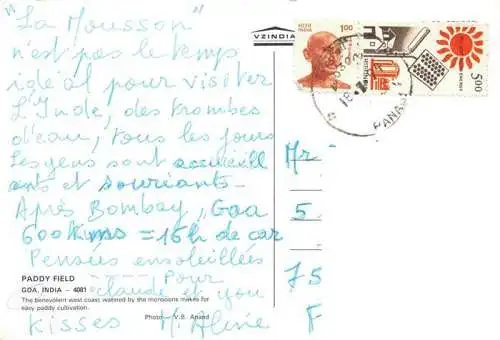 "La Mousson"
n'est pas le temps
idéal pour visiter
L'Inde, des trombes
d'eau, tous les jours
Les gens sont accueill
ants et souriants.
Après Bombay, Goa
600 Kms = 16h de car
Pensées ensoleillées
Pour
claude et you
Kisses M. Aline
PADDY FIELD
GOA, INDIA – 4081
The benevolent west coast watered by the monsoons makes for
easy paddy cultivation.
Photo – V.B. Anand
VZINDIA
INDIA
1.00
5.00
PANA
Mr
5
75
F